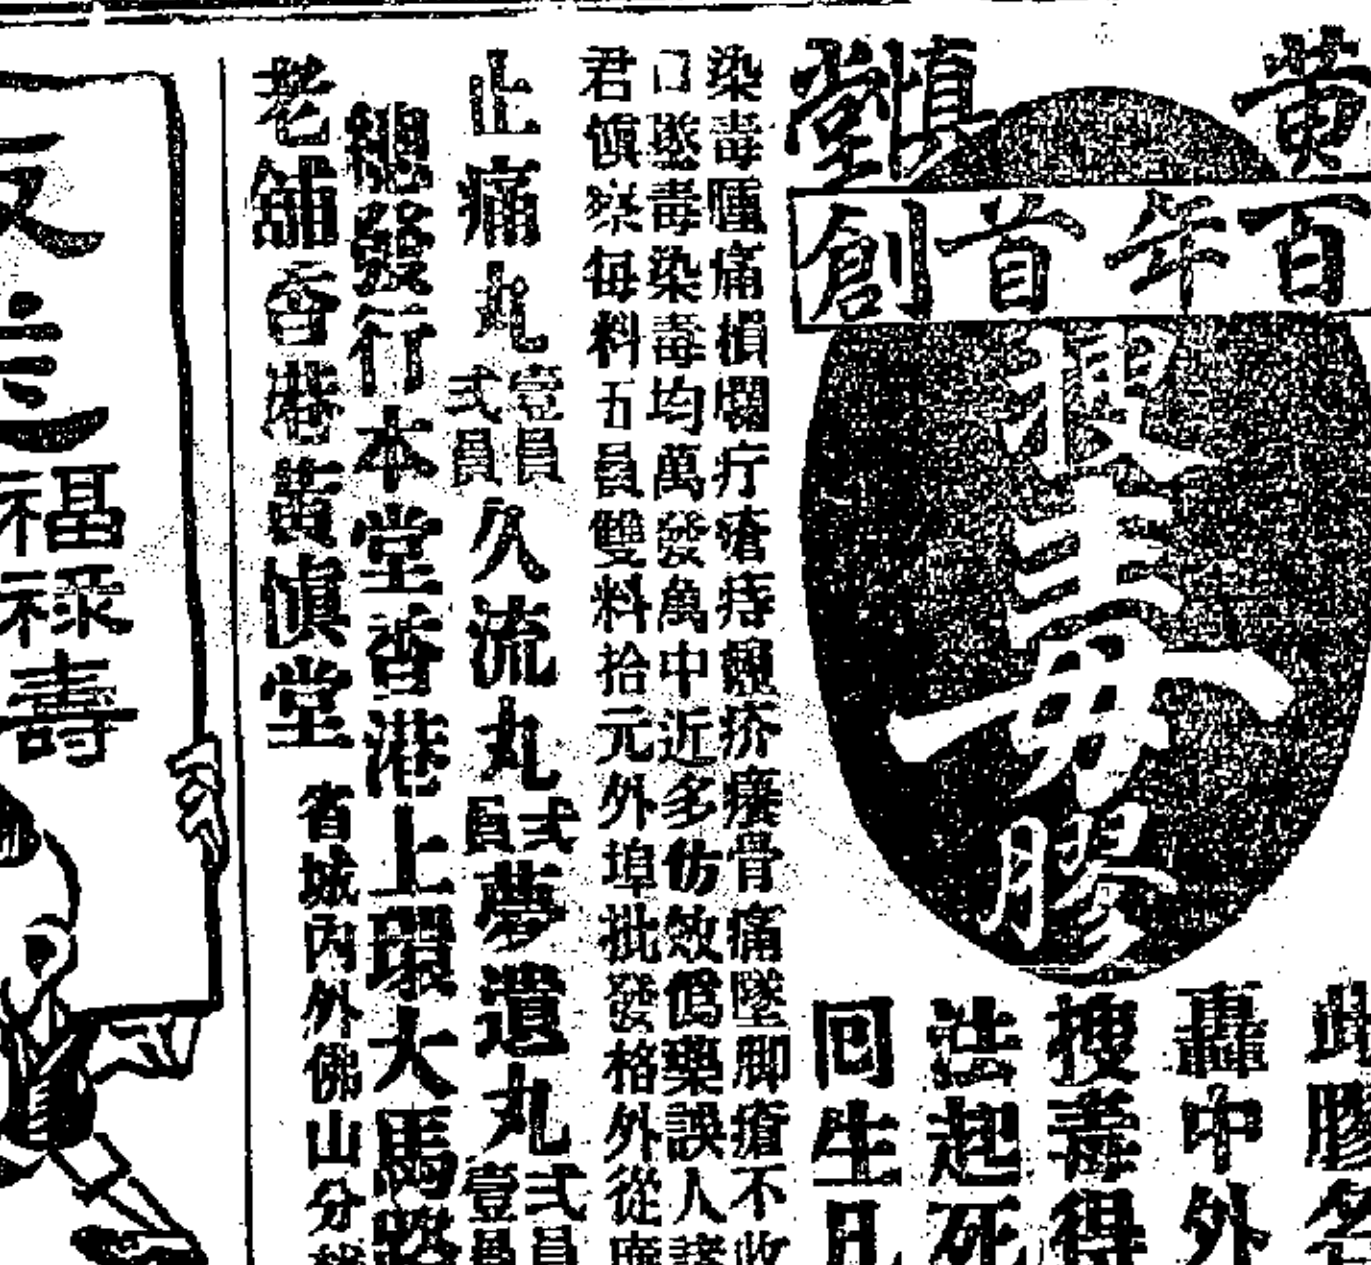 黃慎堂
百年首創
搜毒膠
此膠名
轟中外
搜毒得
法起死
回生凡
染毒腫痛損爛疔瘡痔癩疥癢骨痛墜脚瘡不收
口墜毒染毒均萬發萬中近多仿效僞藥誤人諸
君慎察每料五員雙料拾元外埠批發格外從廉
止痛丸壹員弍員久流丸弍員夢遺丸弍員壹員
總發行本堂香港上環大馬路
老舖香港黃慎堂省城內外佛山分
福祿壽